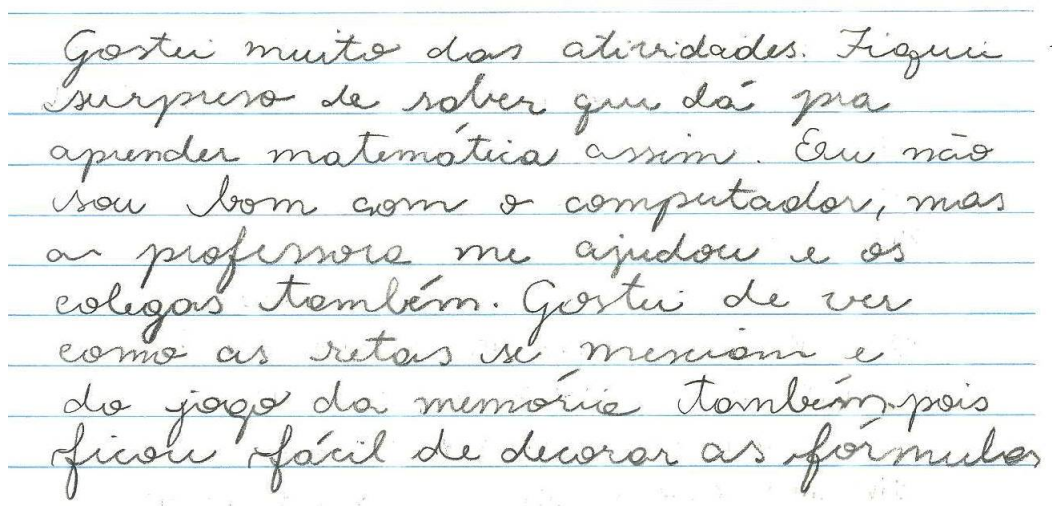 Gostei muito das atividades. Fiquei
surpreso de saber que dá pra
aprender matemática assim. Eu não
sou bom com o computador, mas
a professora me ajudou e os
colegas também. Gostei de ver
como as retas se mexiam e
do jogo da memória também pois
ficou fácil de decorar as fórmulas